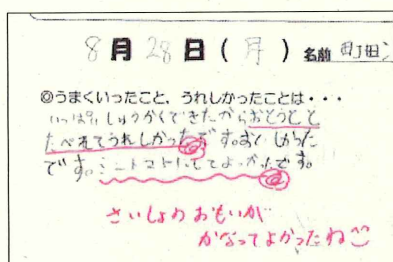 8月28日(月) 名前 町田
◎うまくいったこと、うれしかったことは・・・
いっぱいしゅうかくできたからおとうとと
たべれてうれしかったです。おいしかった
です。ミニトマトにしてよかったです。
さいしょのおもいが
かなってよかったね